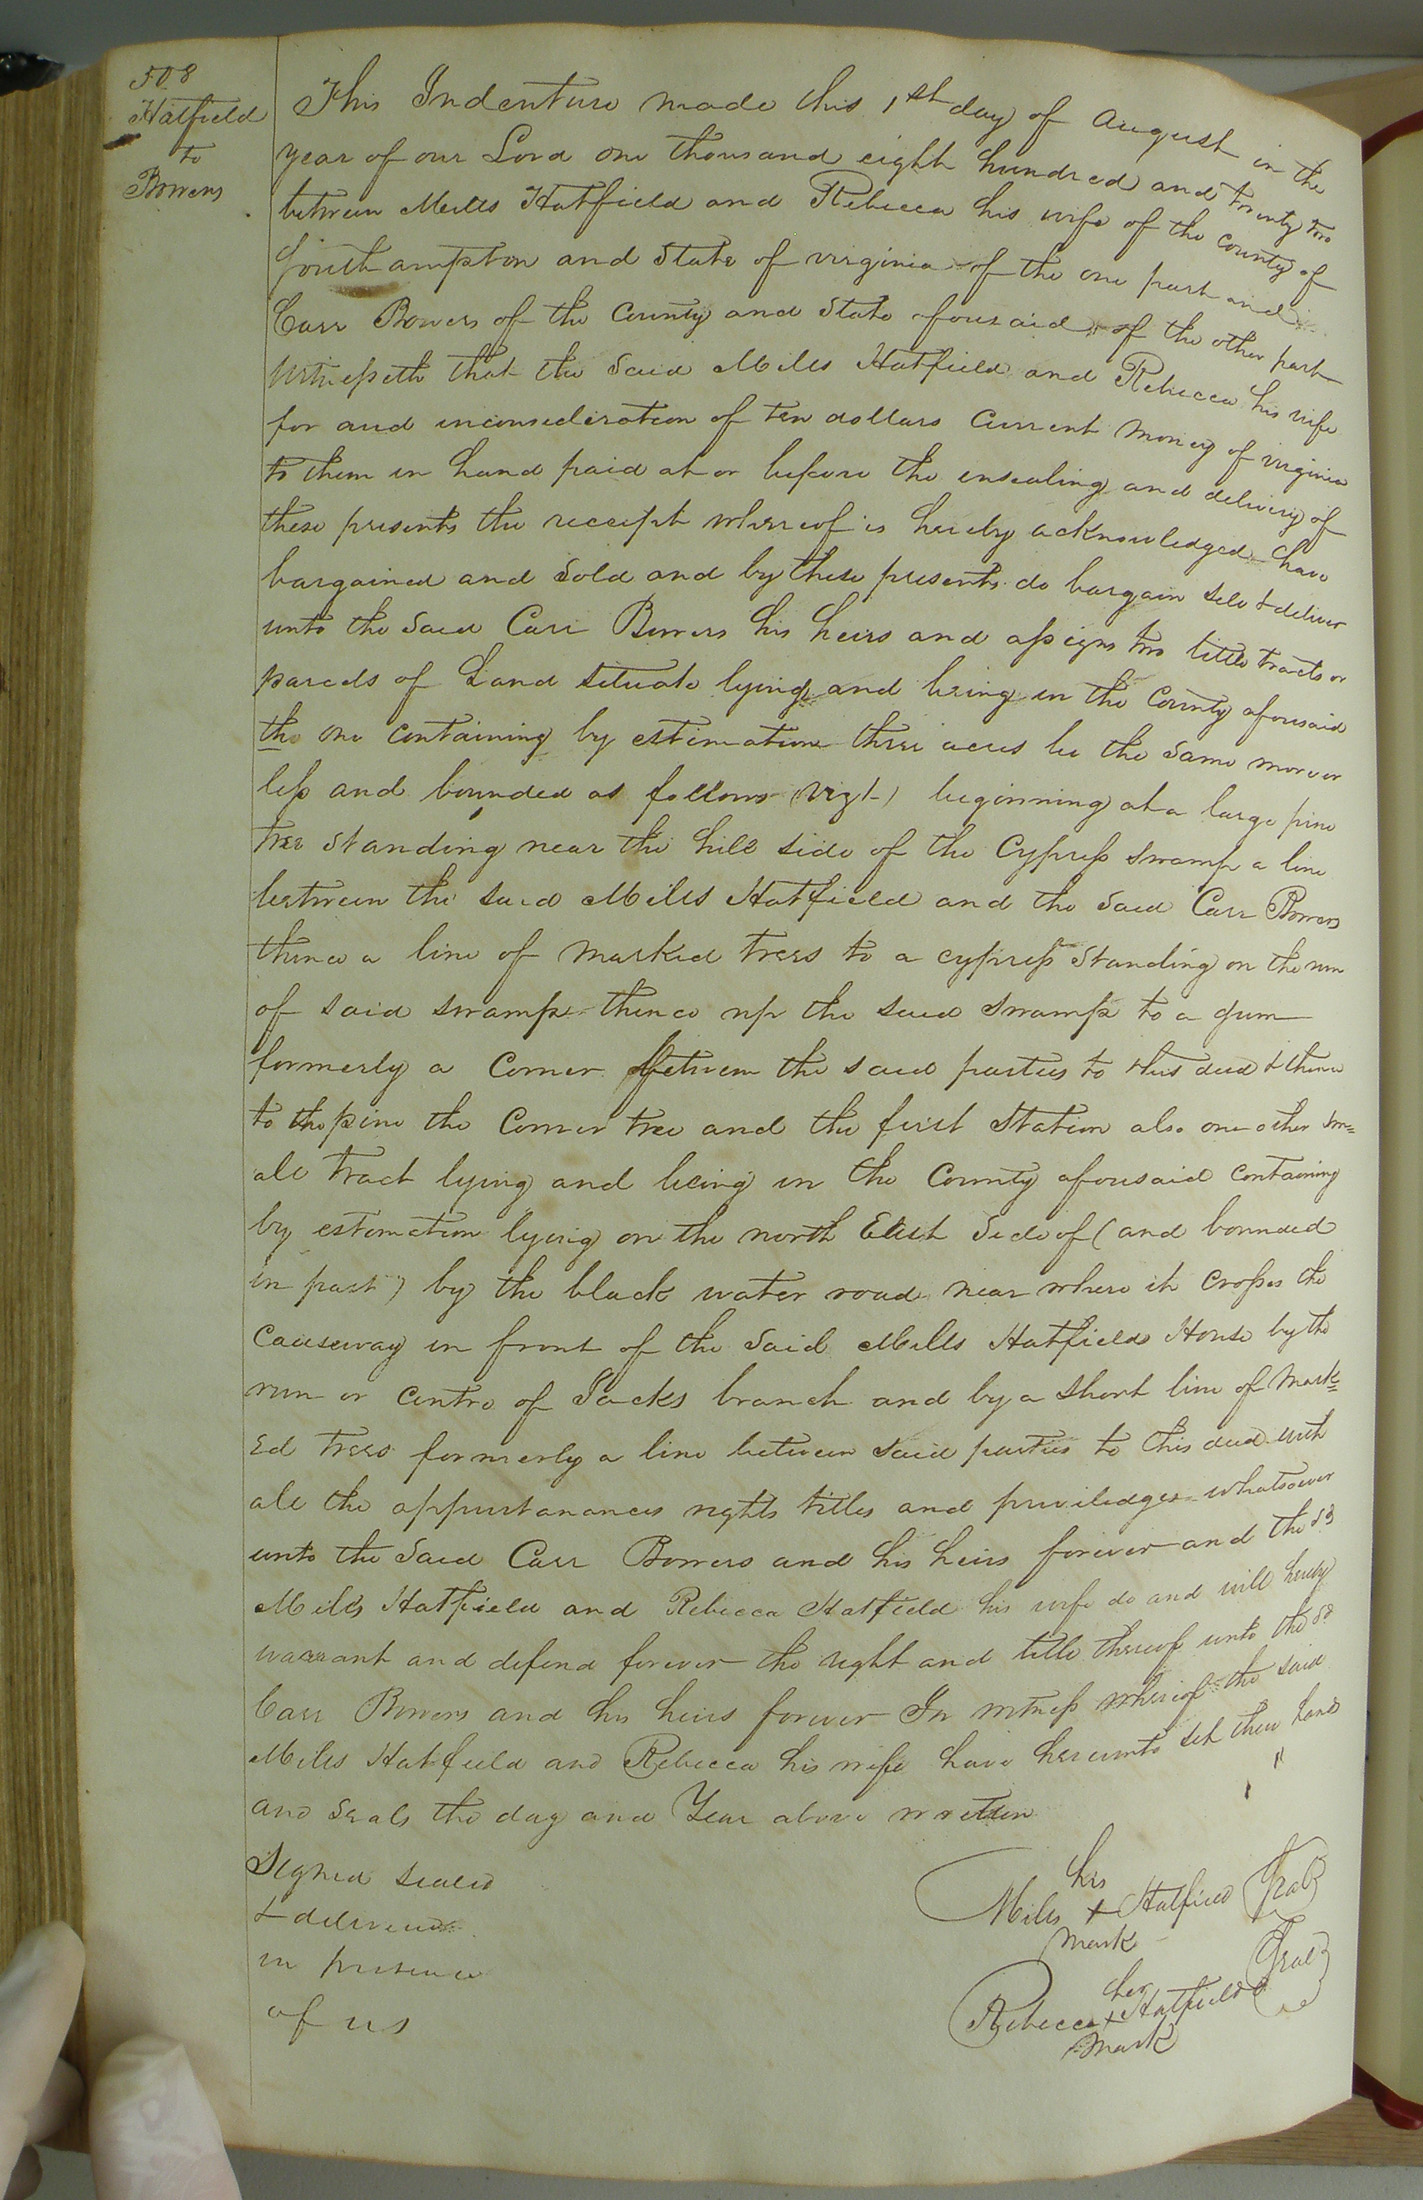 508
Hatfield
to
Bowers
This Indenture made this 1st day of August in the
year of our Lord one thousand eight hundred and twenty two
between Mills Hatfield and Rebecca his wife of the county of
Southampton and State of virginia of the one part and
Carr Bowers of the County and State aforesaid of the other part
Witnesseth that the said Mills Hatfield and Rebecca his wife
for and inconsideration of ten dollars Current money of virginia
to them in hand paid at or before the ensealing and delivery of
these presents the receipt whereof is hereby acknowledged have
bargained and sold and by these presents do bargain sell & deliver
unto the said Carr Bowers his heirs and assigns two little tracts or
parcels of Land situate lying and being in the County aforesaid
the one Containing by estimation three acres be the same more or
less and bounded as follows (vizt) beginning at a large pine
tree standing near the hill side of the Cypress swamp a line
between the said Mills Hatfield and the said Carr Bowers
thence a line of marked trees to a cypress standing on the run
of said swamp thence up the said swamp to a gum
formerly a Corner between the said parties to this deed & thence
to the pine the Corner tree and the first Station also one other sm=
all tract lying and being in the County aforesaid containing
by estimation lying on the north East side of (and bounded
in part) by the black water road near where it crosses the
Causeway in front of the said Mills Hatfields House by the
run or centre of Jacks branch and by a short line of mark=
Ed trees formerly a line between said parties to this deed with
all the appurtanances rights titles and priviledges whatsoever
unto the said Carr Bowers and his heirs forever and the sd
Mills Hatfield and Rebecca Hatfield his wife do and will hereby
warrant and defend forever the right and title thereof unto the sd
Carr Bowers and his heirs forever In witness whereof the said
Mills Hatfield and Rebecca his wife have hereunto set their hands
and seals the day and Year above written
Signed sealed
& delivered
in presence
of us
his
Mills + Hatfield Seal
mark
her
Rebecca + Hatfield Seal
mark